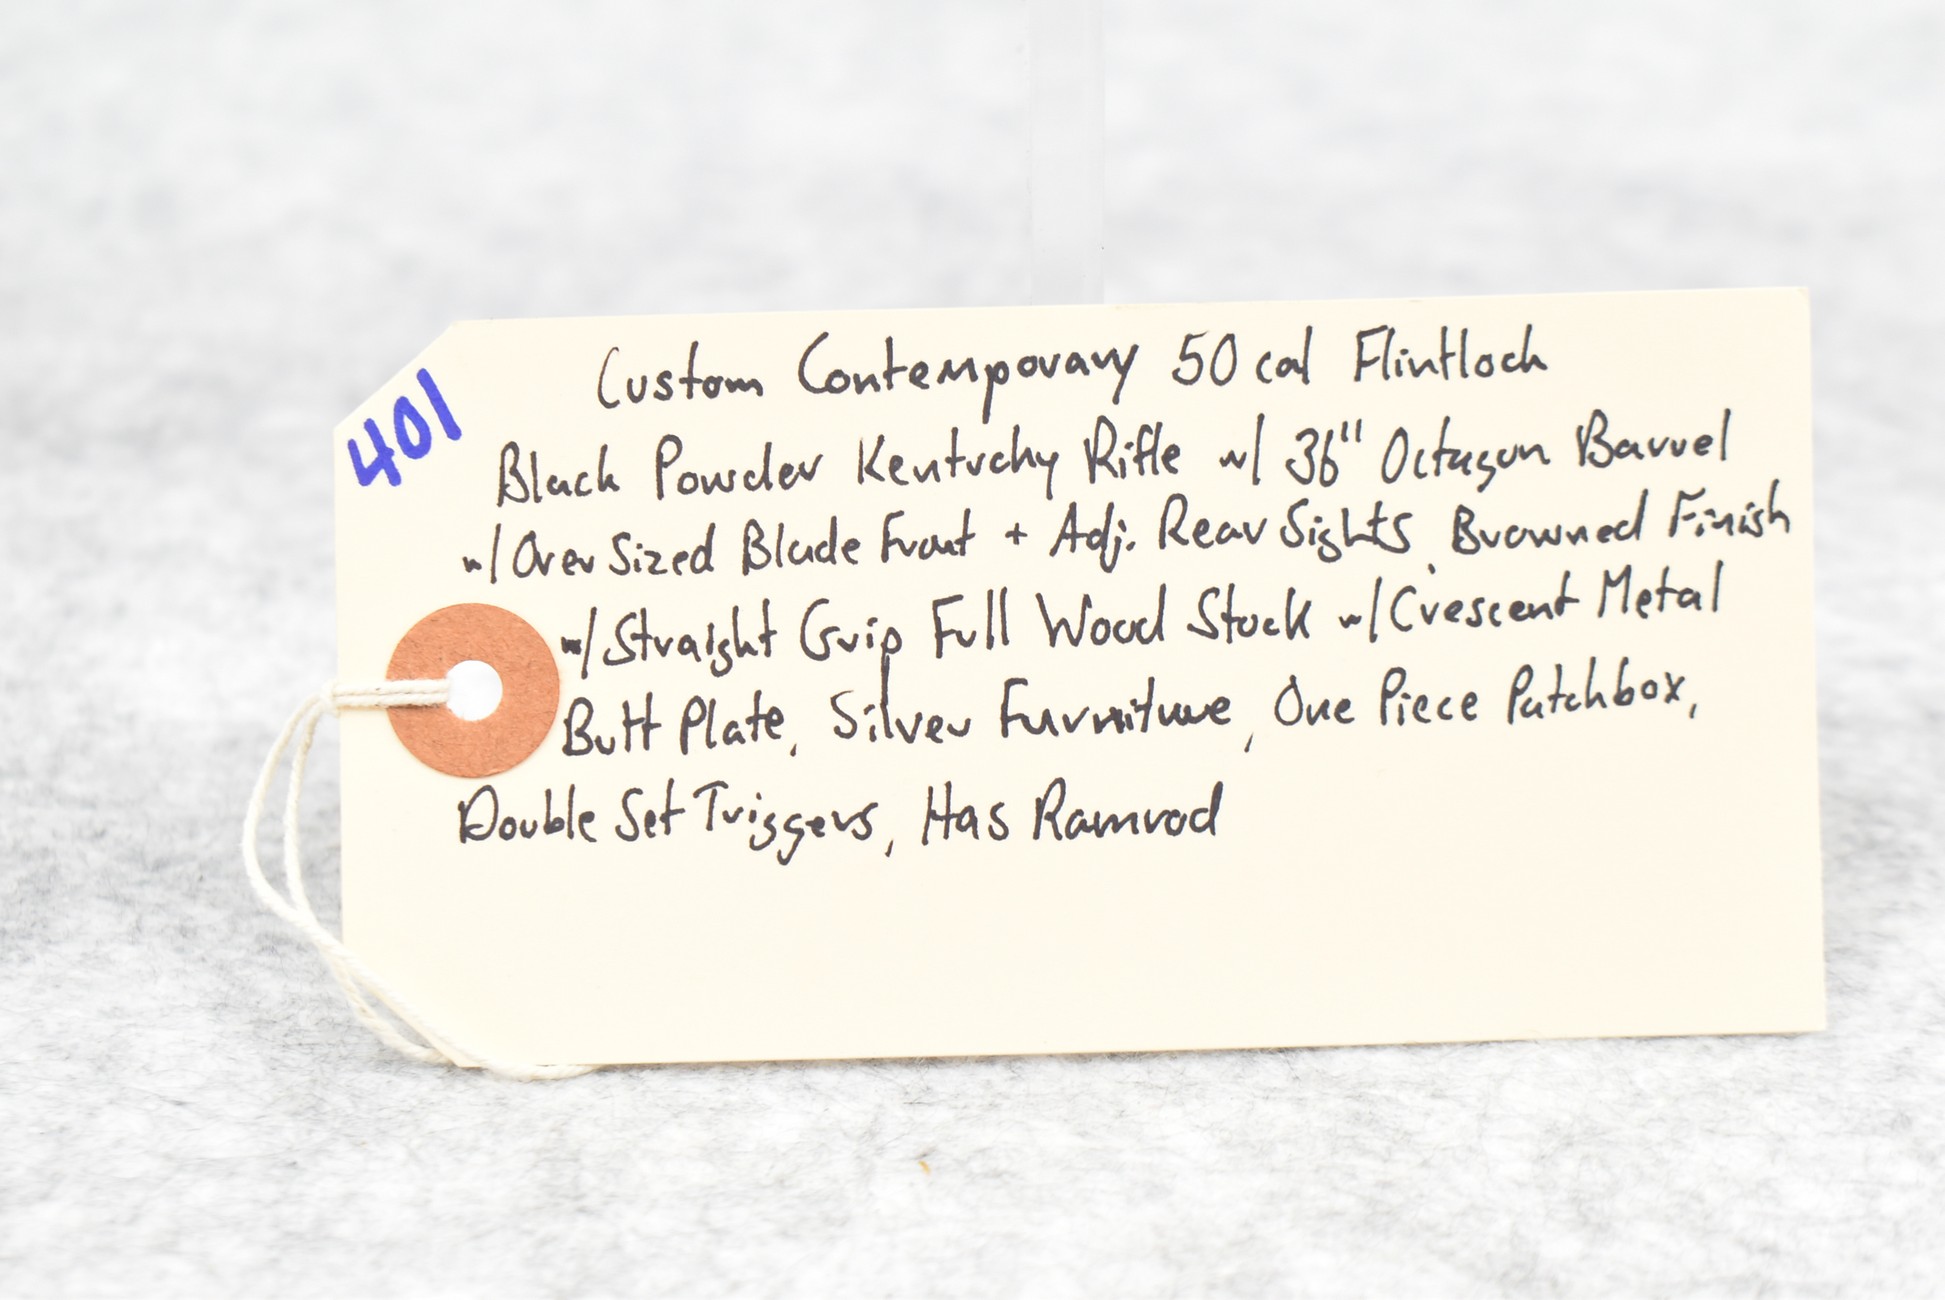 401
Custom Contemporary 50 cal Flintlock
Black Powder Kentucky Rifle w/ 36" Octagon Barrel
w/ Over Sized Blade Front + Adj. Rear Sights, Browned Finish
w/ Straight Grip Full Wood Stock w/ Crescent Metal
Butt Plate, Silver Furniture, One Piece Patchbox,
Double Set Triggers, Has Ramrod